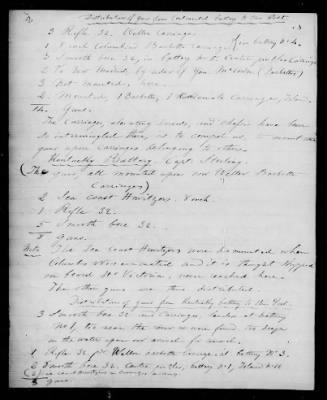 Distribution of Guns from Continental battery to New Post.
3 Rifle 32. Weller Carriages.
1 8 inch Columbiad Barbette Carriage in battery No 4.
3 Smooth bore 32, in battery No Centre pintle Carriages
2 To New Madrid, by order of Gen. (Barbette)
3 Not mounted, here.
2 Mounted, 1 Barbette, 1 Carriage, Island.
14. Guns.
The Carriages, elevating screws, and chassis have been
so intermingled there, as to compel us, to mount the
guns upon Carriages belonging to others.
Kentucky Battery. Capt.
(The guns all mounted upon new Weller Barbette
Carriages)
2 Sea coast Howitzers. 8 inch.
1 Rifle 32.
5 Smooth bore 32.
8 Guns.
Note The Sea Coast Howitzers were dismounted when
Columbus was evacuated and it is thought shipped
on board Str Victoria, never reached here.
The other guns are thus distributed.
Distribution of guns from Kentucky battery to New Post.
3 Smooth bore 32 and Carriages, landed at battery
No 1, too near the river
in the water upon our arrival
1 Rifle 32 pr Weller barbette Carriage at battery No 3.
2 Smooth bore 32, Centre pintle, battery No 1, Island No 10
2
8 Guns.